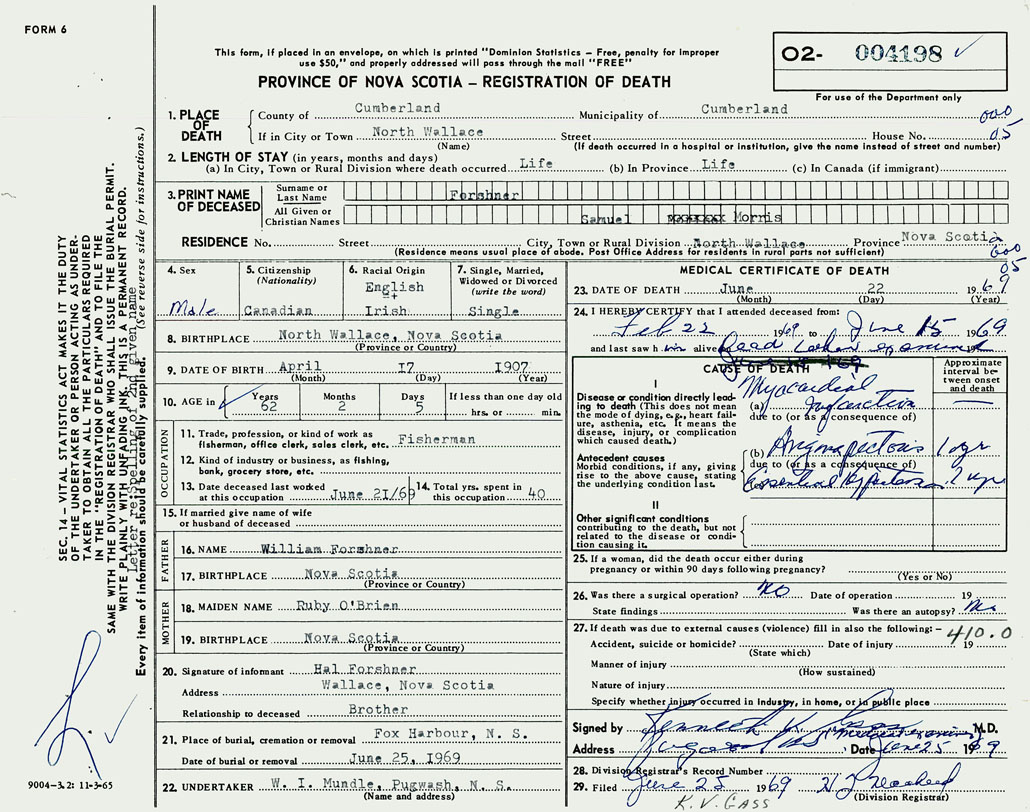 FORM 6
This form, if placed in an envelope, on which is printed "Dominion Statistics – Free, penalty for improper
use $50," and properly addressed will pass through the mail "FREE"
PROVINCE OF NOVA SCOTIA – REGISTRATION OF DEATH
O2- 004198
For use of the Department only
1. PLACE OF DEATH
County of Cumberland Municipality of Cumberland
If in City or Town North Wallace Street House No.
(Name) (If death occurred in a hospital or institution, give the name instead of street and number)
000
05
2. LENGTH OF STAY (in years, months and days)
(a) In City, Town or Rural Division where death occurred Life (b) In Province Life (c) In Canada (if immigrant)
3. PRINT NAME OF DECEASED
Surname or Last Name Forshner
All Given or Christian Names Samuel Morris
RESIDENCE No. Street City, Town or Rural Division North Wallace Province Nova Scotia
(Residence means usual place of abode. Post Office Address for residents in rural parts not sufficient)
000
05
4. Sex
Male
5. Citizenship
(Nationality)
Canadian
6. Racial Origin
English
+
Irish
7. Single, Married,
Widowed or Divorced
(write the word)
Single
8. BIRTHPLACE North Wallace, Nova Scotia
(Province or Country)
9. DATE OF BIRTH April 17 1907
(Month) (Day) (Year)
10. AGE in Years 62 Months 2 Days 5 If less than one day old
hrs. or min.
OCCUPATION
11. Trade, profession, or kind of work as
fisherman, office clerk, sales clerk, etc. Fisherman
12. Kind of industry or business, as fishing,
bank, grocery store, etc.
13. Date deceased last worked
at this occupation June 21/69
14. Total yrs. spent in
this occupation 40
15. If married give name of wife
or husband of deceased
FATHER
16. NAME William Forshner
17. BIRTHPLACE Nova Scotia
(Province or Country)
MOTHER
18. MAIDEN NAME Ruby O'Brien
19. BIRTHPLACE Nova Scotia
(Province or Country)
20. Signature of informant Hal Forshner
Address Wallace, Nova Scotia
Relationship to deceased Brother
21. Place of burial, cremation or removal Fox Harbour, N. S.
Date of burial or removal June 25, 1969
22. UNDERTAKER W. I. Mundle, Pugwash, N. S.
(Name and address)
MEDICAL CERTIFICATE OF DEATH
23. DATE OF DEATH June 22 1969
(Month) (Day) (Year)
24. I HEREBY CERTIFY that I attended deceased from:
Feb 22 1969 to June 15 1969
and last saw him alive Dead when examined 19
June 69
CAUSE OF DEATH
Approximate interval between onset and death
I
Disease or condition directly leading to death (This does not mean the mode of dying, e.g., heart failure, asthenia, etc. It means the disease, injury, or complication which caused death.)
(a) Myocardial Infarction
due to (or as a consequence of)
Antecedent causes
Morbid conditions, if any, giving rise to the above cause, stating the underlying condition last.
(b) Angina pectoris 1 yr
due to (or as a consequence of)
(c) Essential Hypertension ? yrs
II
Other significant conditions
contributing to the death, but not
related to the disease or condition causing it.
25. If a woman, did the death occur either during
pregnancy or within 90 days following pregnancy?
(Yes or No)
26. Was there a surgical operation? No Date of operation 19
State findings Was there an autopsy? No
27. If death was due to external causes (violence) fill in also the following: –
410.0
Accident, suicide or homicide? Date of injury 19
(State which)
Manner of injury
(How sustained)
Nature of injury
Specify whether injury occurred in Industry, in home, or in public place
Signed by Kenneth V. Gass M.D.
Address Pugwash NS Date June 25 1969
28. Division Registrar's Record Number
29. Filed June 25 1969
(Division Registrar)
K. V. GASS
SEC. 14 – VITAL STATISTICS ACT MAKES IT THE DUTY
OF THE UNDERTAKER OR PERSON ACTING AS UNDER-
TAKER TO OBTAIN ALL THE PARTICULARS REQUIRED
IN THE "REGISTRATION OF DEATH" AND TO FILE THE
SAME WITH THE DIVISION REGISTRAR WHO SHALL ISSUE THE BURIAL PERMIT.
WRITE PLAINLY WITH UNFADING INK. THIS IS A PERMANENT RECORD.
Letter re: spelling of 2nd given name
Every item of information should be carefully supplied. (See reverse side for instructions.)
9004-3.2: 11-3-65